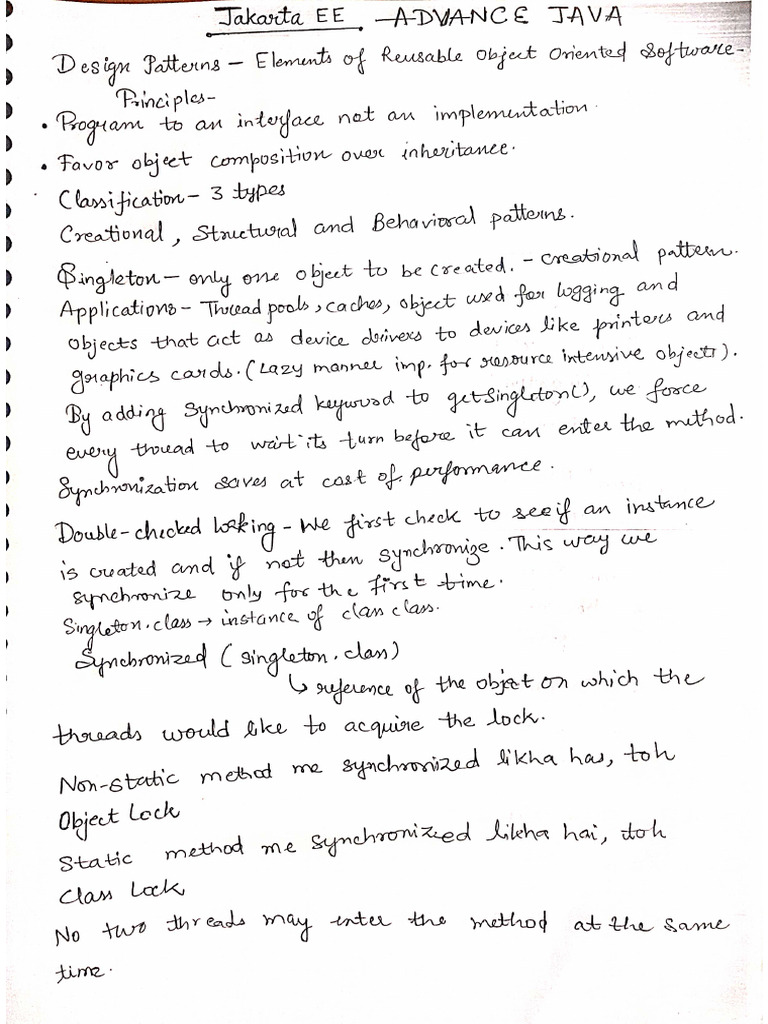 Jakarta EE - ADVANCE JAVA
Design Patterns - Elements of Reusable Object Oriented Software-
Principles-
• Program to an interface not an implementation.
• Favor object composition over inheritance.
Classification - 3 types
Creational, Structural and Behavioral patterns.
Singleton - only one object to be created. - creational pattern.
Applications - Thread pools, caches, object used for logging and
objects that act as device drivers to devices like printers and
graphics cards. (Lazy manner imp. for resource intensive objects).
By adding synchronized keyword to getSingleton(), we force
every thread to wait its turn before it can enter the method.
Synchronization saves at cost of performance.
Double-checked locking - We first check to see if an instance
is created and if not then synchronize. This way we
synchronize only for the first time.
Singleton.class → instance of class class.
Synchronized (singleton.class)
↳ reference of the object on which the
threads would like to acquire the lock.
Non-static method me synchronized likha hai, toh
Object Lock
Static method me synchronized likha hai, toh
Class Lock
No two threads may enter the method at the same
time.